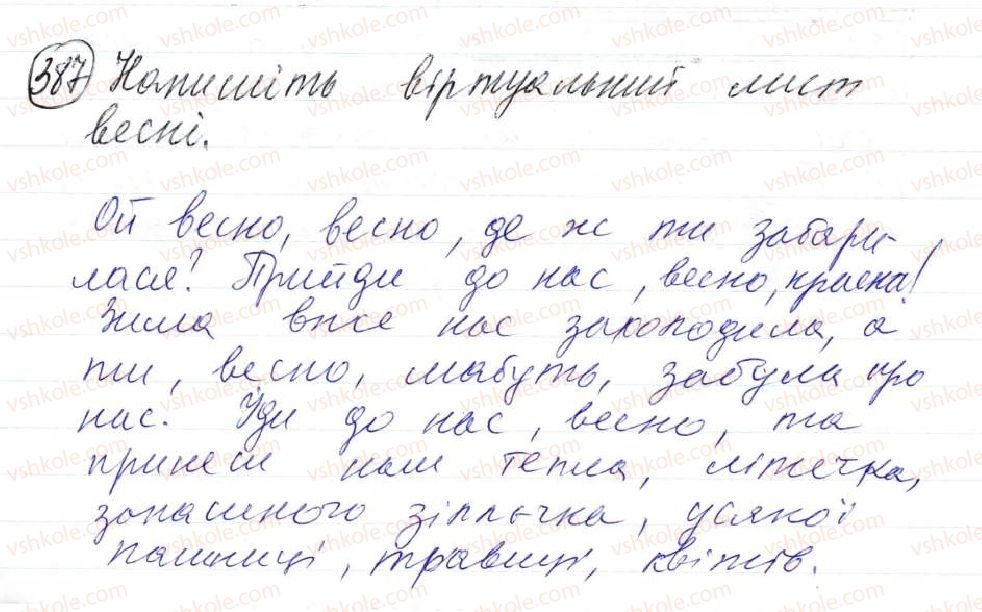 387 Напишіть віртуальний лист
весні.
Ой весно, весно, де ж ти забари-
лася? Прийди до нас, весно, красна!
Зима вже нас захолодила, а
ти, весно, мабуть, забула про
нас. Іди до нас, весно, та
принеси нам тепла, літечка,
запашного зіллячка, усякої
пашниці, травиці, квітів.